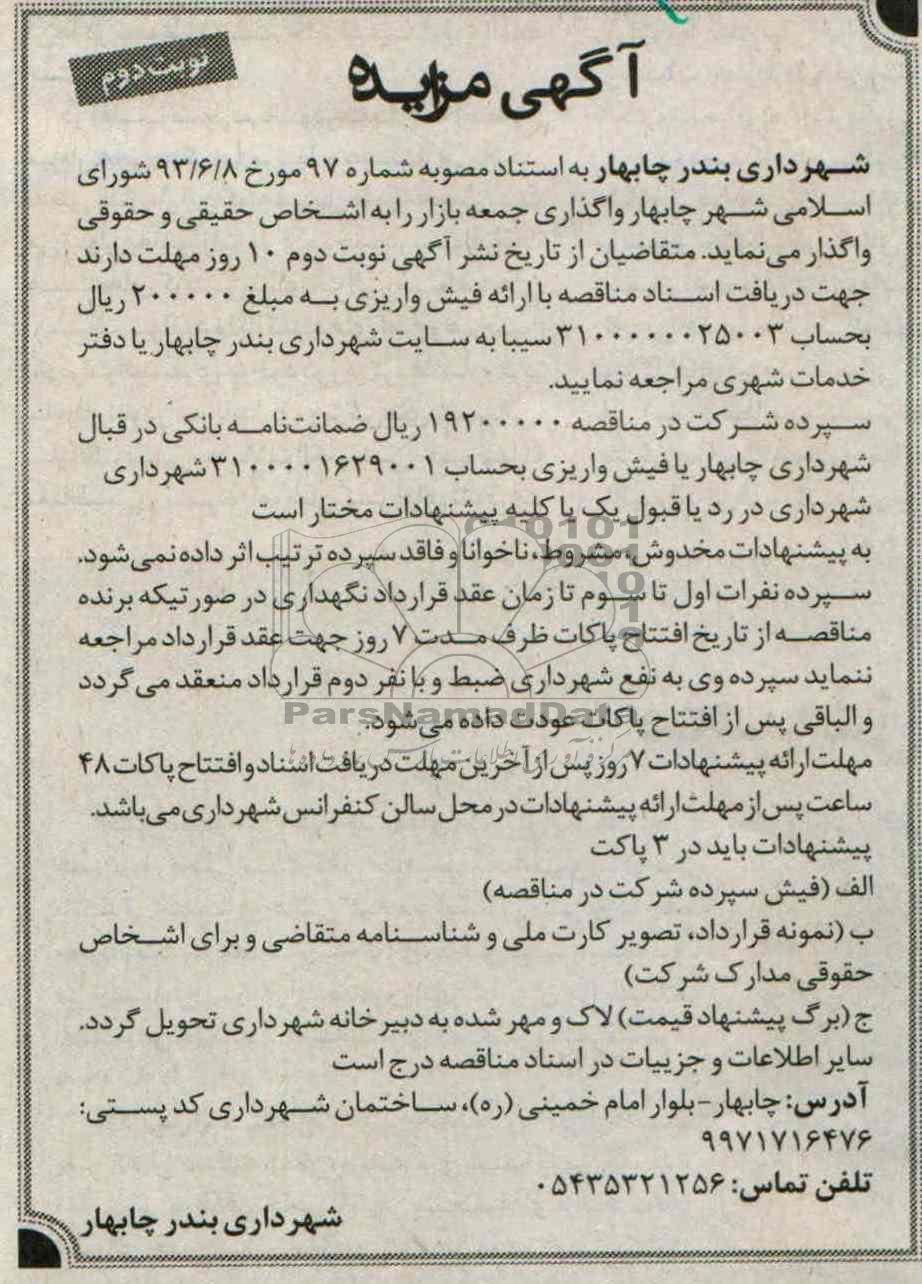 آگهی مزایده
نوبت دوم
شهرداری بندر چابهار به استناد مصوبه شماره ۹۷ مورخ ۹۳/۶/۸ شورای
اسلامی شهر چابهار واگذاری جمعه بازار را به اشخاص حقیقی و حقوقی
واگذار می‌نماید. متقاضیان از تاریخ نشر آگهی نوبت دوم ۱۰ روز مهلت دارند
جهت دریافت اسناد مناقصه با ارائه فیش واریزی به مبلغ ۲۰۰۰۰۰ ریال
بحساب ۳۱۰۰۰۰۰۰۲۵۰۰۳ سیبا به سایت شهرداری بندر چابهار یا دفتر
خدمات شهری مراجعه نمایید.
سپرده شرکت در مناقصه ۱۹۲۰۰۰۰۰ ریال ضمانت‌نامه بانکی در قبال
شهرداری چابهار یا فیش واریزی بحساب ۳۱۰۰۰۰۱۶۲۹۰۰۱ شهرداری
شهرداری در رد یا قبول یک یا کلیه پیشنهادات مختار است
به پیشنهادات مخدوش، مشروط، ناخوانا و فاقد سپرده ترتیب اثر داده نمی‌شود.
سپرده نفرات اول تا سوم تا زمان عقد قرارداد نگهداری در صورتیکه برنده
مناقصه از تاریخ افتتاح پاکات ظرف مدت ۷ روز جهت عقد قرارداد مراجعه
ننماید سپرده وی به نفع شهرداری ضبط و با نفر دوم قرارداد منعقد می‌گردد
و الباقی پس از افتتاح پاکات عودت داده می‌شود.
ParsNamadData
مهلت ارائه پیشنهادات ۷ روز پس از آخرین مهلت دریافت اسناد و افتتاح پاکات ۴۸
ساعت پس از مهلت ارائه پیشنهادات در محل سالن کنفرانس شهرداری می‌باشد.
پیشنهادات باید در ۳ پاکت
الف (فیش سپرده شرکت در مناقصه)
ب (نمونه قرارداد، تصویر کارت ملی و شناسنامه متقاضی و برای اشخاص
حقوقی مدارک شرکت)
ج (برگ پیشنهاد قیمت) لاک و مهر شده به دبیرخانه شهرداری تحویل گردد.
سایر اطلاعات و جزییات در اسناد مناقصه درج است
آدرس: چابهار-بلوار امام خمینی (ره)، ساختمان شهرداری کد پستی:
۹۹۷۱۷۱۶۴۷۶
تلفن تماس: ۰۵۴۳۵۳۲۱۲۵۶
شهرداری بندر چابهار